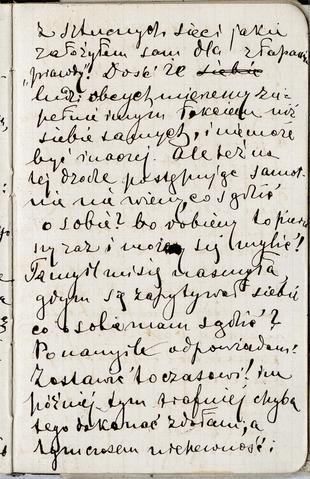 z sztucznych sieci jakie
założyłem sam dla złapania
„prawdy”. Dość że siebie
ludzi obcych mierzemy zu-
pełnie innym łokciem niż
siebie samych, i nie może
być inaczej. Ale też na
tej drodze postępując samot-
nie nie wiemy co sądzić
o sobie? bo robimy to pierw
szy raz i może się mylić!
Ta myśl mi się nasunęła
gdym się zapytywał siebie
co o sobie mam sądzić?
Po namyśle odpowiadam:
Zostawić to czasowi! im
później tym trafniej chyba
tego dokonać zdołam, a
tymczasem niepewność i